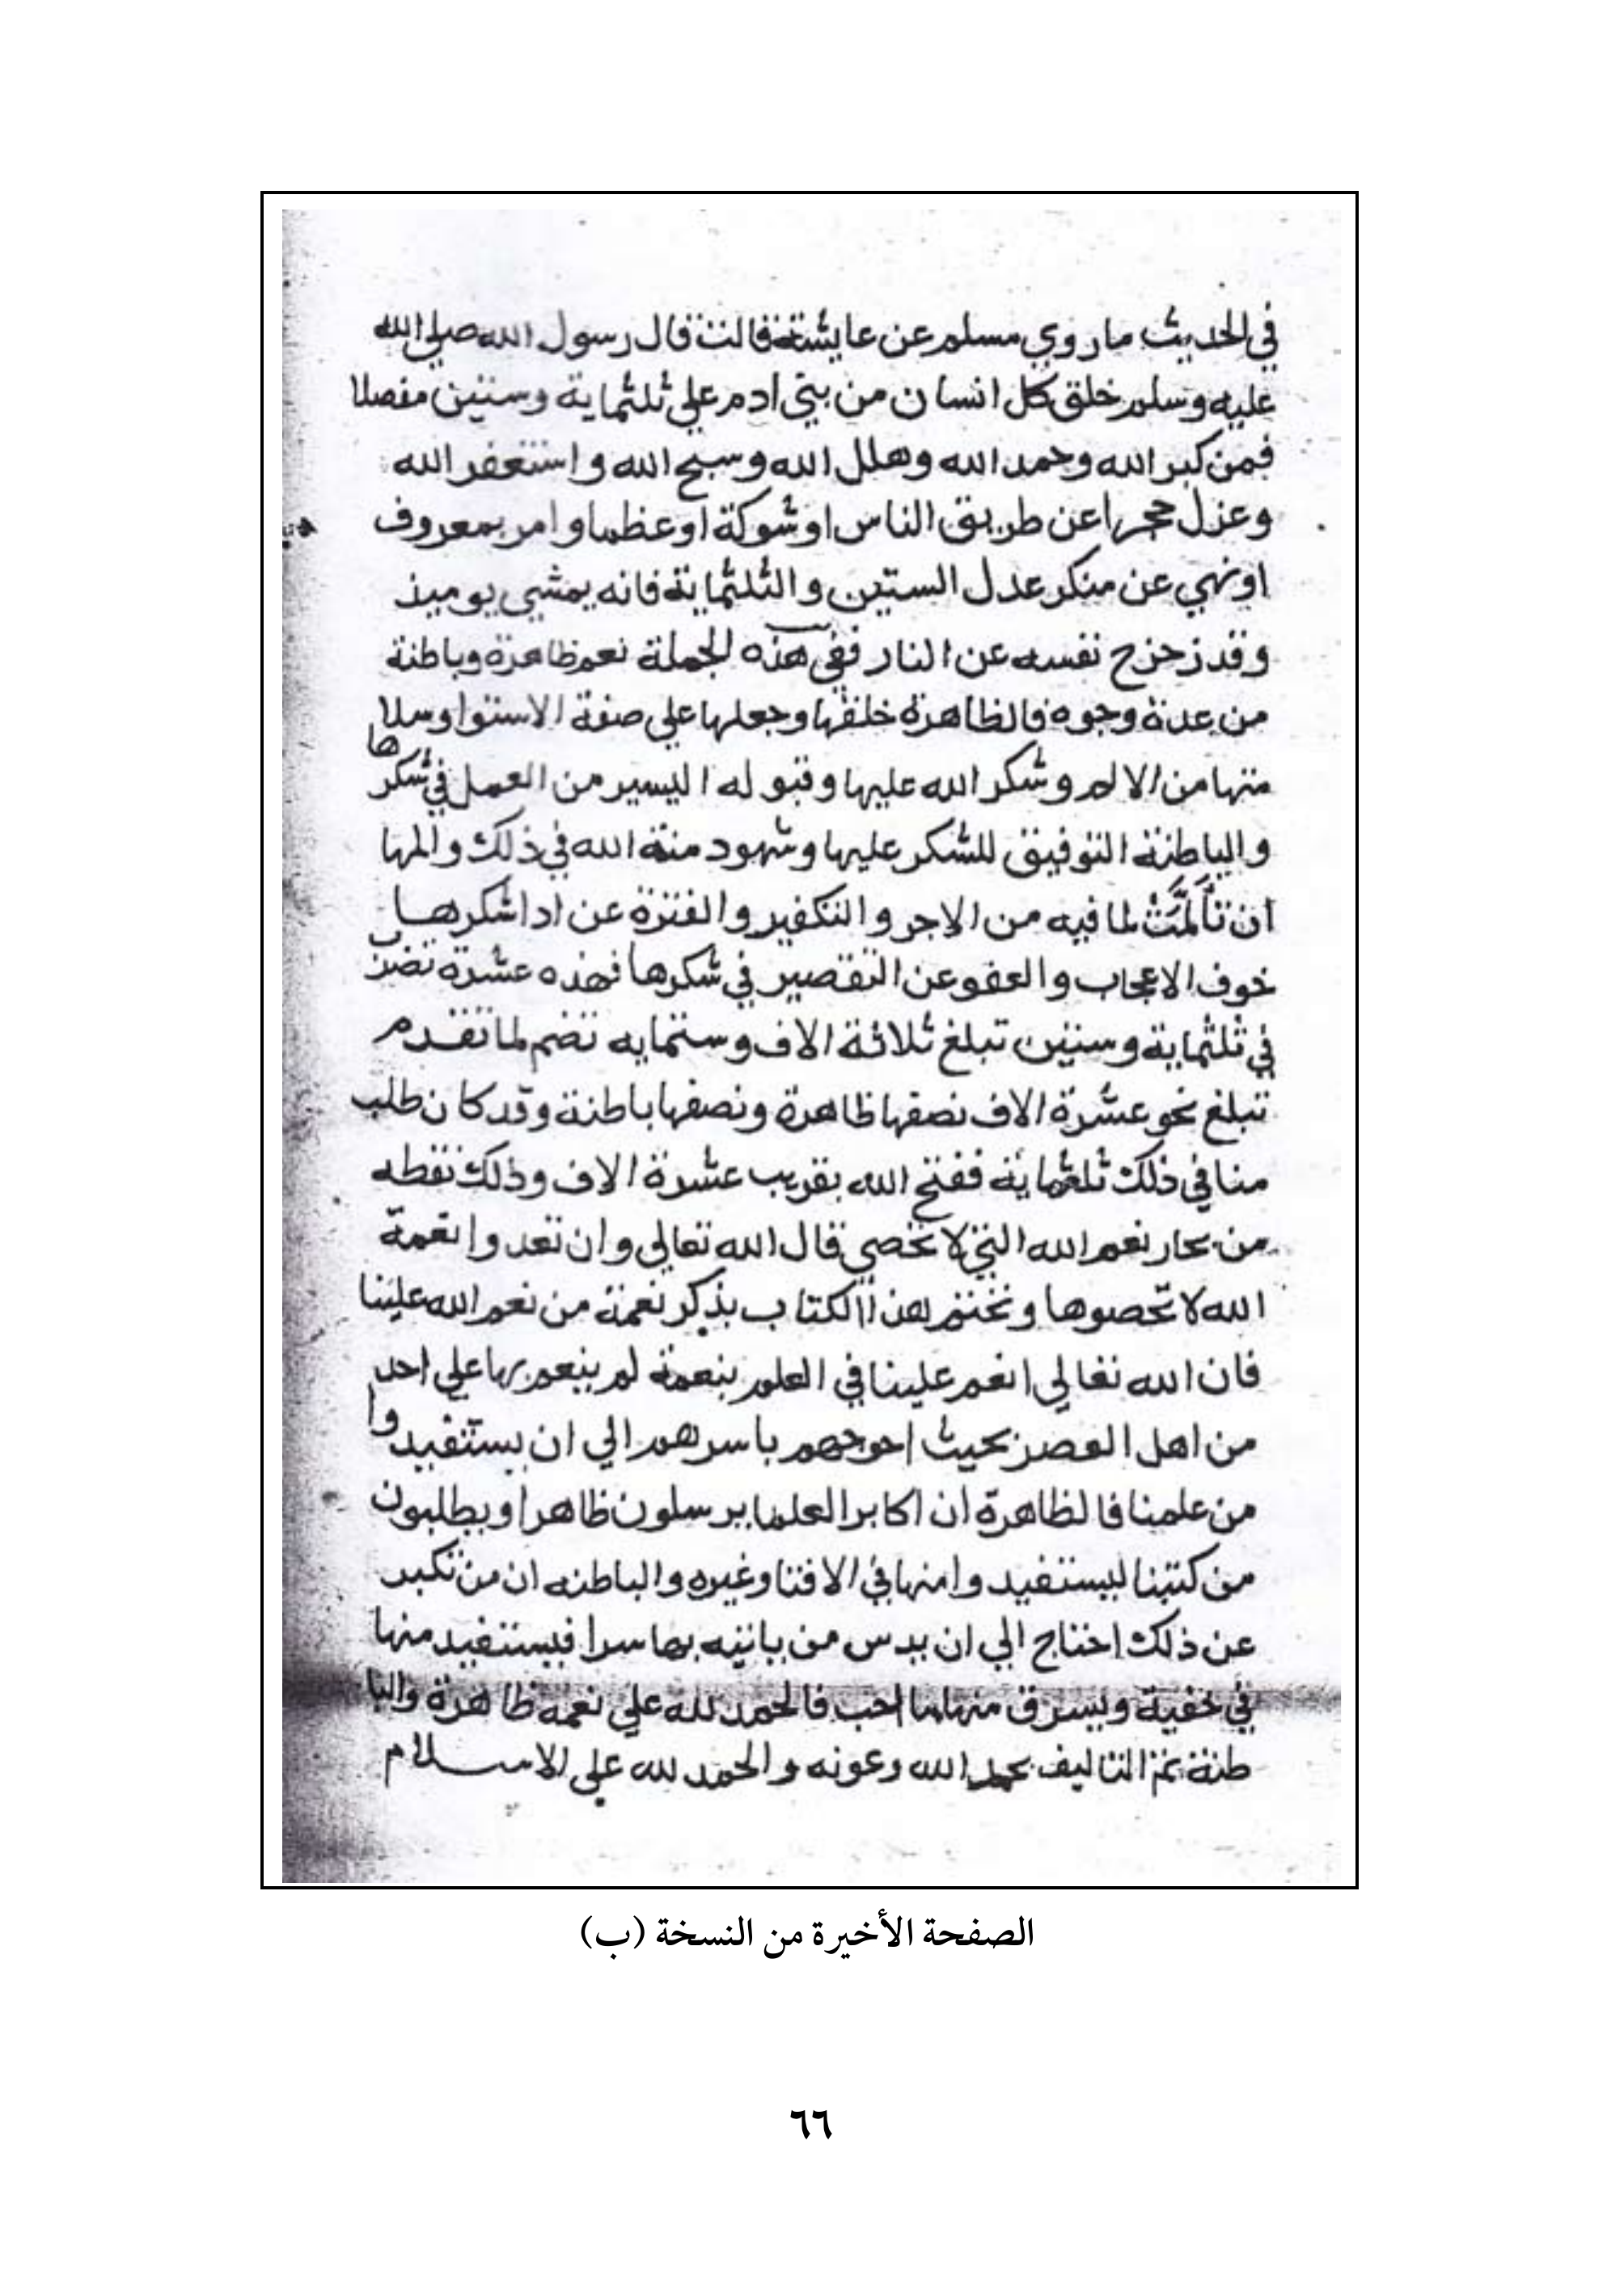 في الحديث ما روي مسلم عن عايشة قالت قال رسول الله صلي الله
عليه وسلم خلق كل انسان من بني ادم علي ثلثماية وستين مفصلا
فمن كبر الله وحمد الله وهلل الله وسبح الله واستغفر الله
وعزل حجرا عن طريق الناس او شوكة او عظما وامر بمعروف
او نهي عن منكر عدل الستين والثلثماية فانه يمشي يوميذ
وقد زحزح نفسه عن النار ففي هذه الجملة نعم ظاهرة وباطنة
من عدة وجوه فالظاهرة خلقها وجعلها علي صفة الاستوا وسلا
متها من الالم وشكر الله عليها وقبوله اليسير من العمل في شكرها
والباطنة التوفيق للشكر عليها وشهود منة الله في ذلك والمها
ان تألمت لما فيه من الاجر والتكفير والفترة عن ادا شكرها
خوف الاعجاب والعفو عن التقصير في شكرها فهذه عشرة تضرب
في ثلثماية وستين تبلغ ثلاثة الاف وستمايه تضم لما تقدم
تبلغ نحو عشرة الاف نصفها ظاهرة ونصفها باطنة وقد كان طلب
منا في ذلك ثلثماية ففتح الله بقريب عشرة الاف وذلك نقطه
من بحار نعم الله التي لا تحصي قال الله تعالي وان تعدوا نعمة
الله لا تحصوها ونختم هذا الكتاب بذكر نعمة من نعم الله علينا
فان الله تعالي انعم علينا في العلم بنعمة لم ينعم بها علي احد
من اهل العصر بحيث احوجهم باسرهم الي ان يستفيدوا
من علمنا فالظاهرة ان اكابر العلما يرسلون ظاهرا ويطلبون
من كتبنا ليستفيدوا منها في الافتا وغيره والباطنه ان من تكبر
عن ذلك احتاج الي ان يدس من ياتيه بها سرا فيستفيد منها
في خفية ويسرق منها ما احب فالحمد لله علي نعمه ظاهرة والبا
طنة تم التاليف بحمد الله وعونه والحمد لله علي الاسلام
الصفحة الأخيرة من النسخة (ب)
٦٦